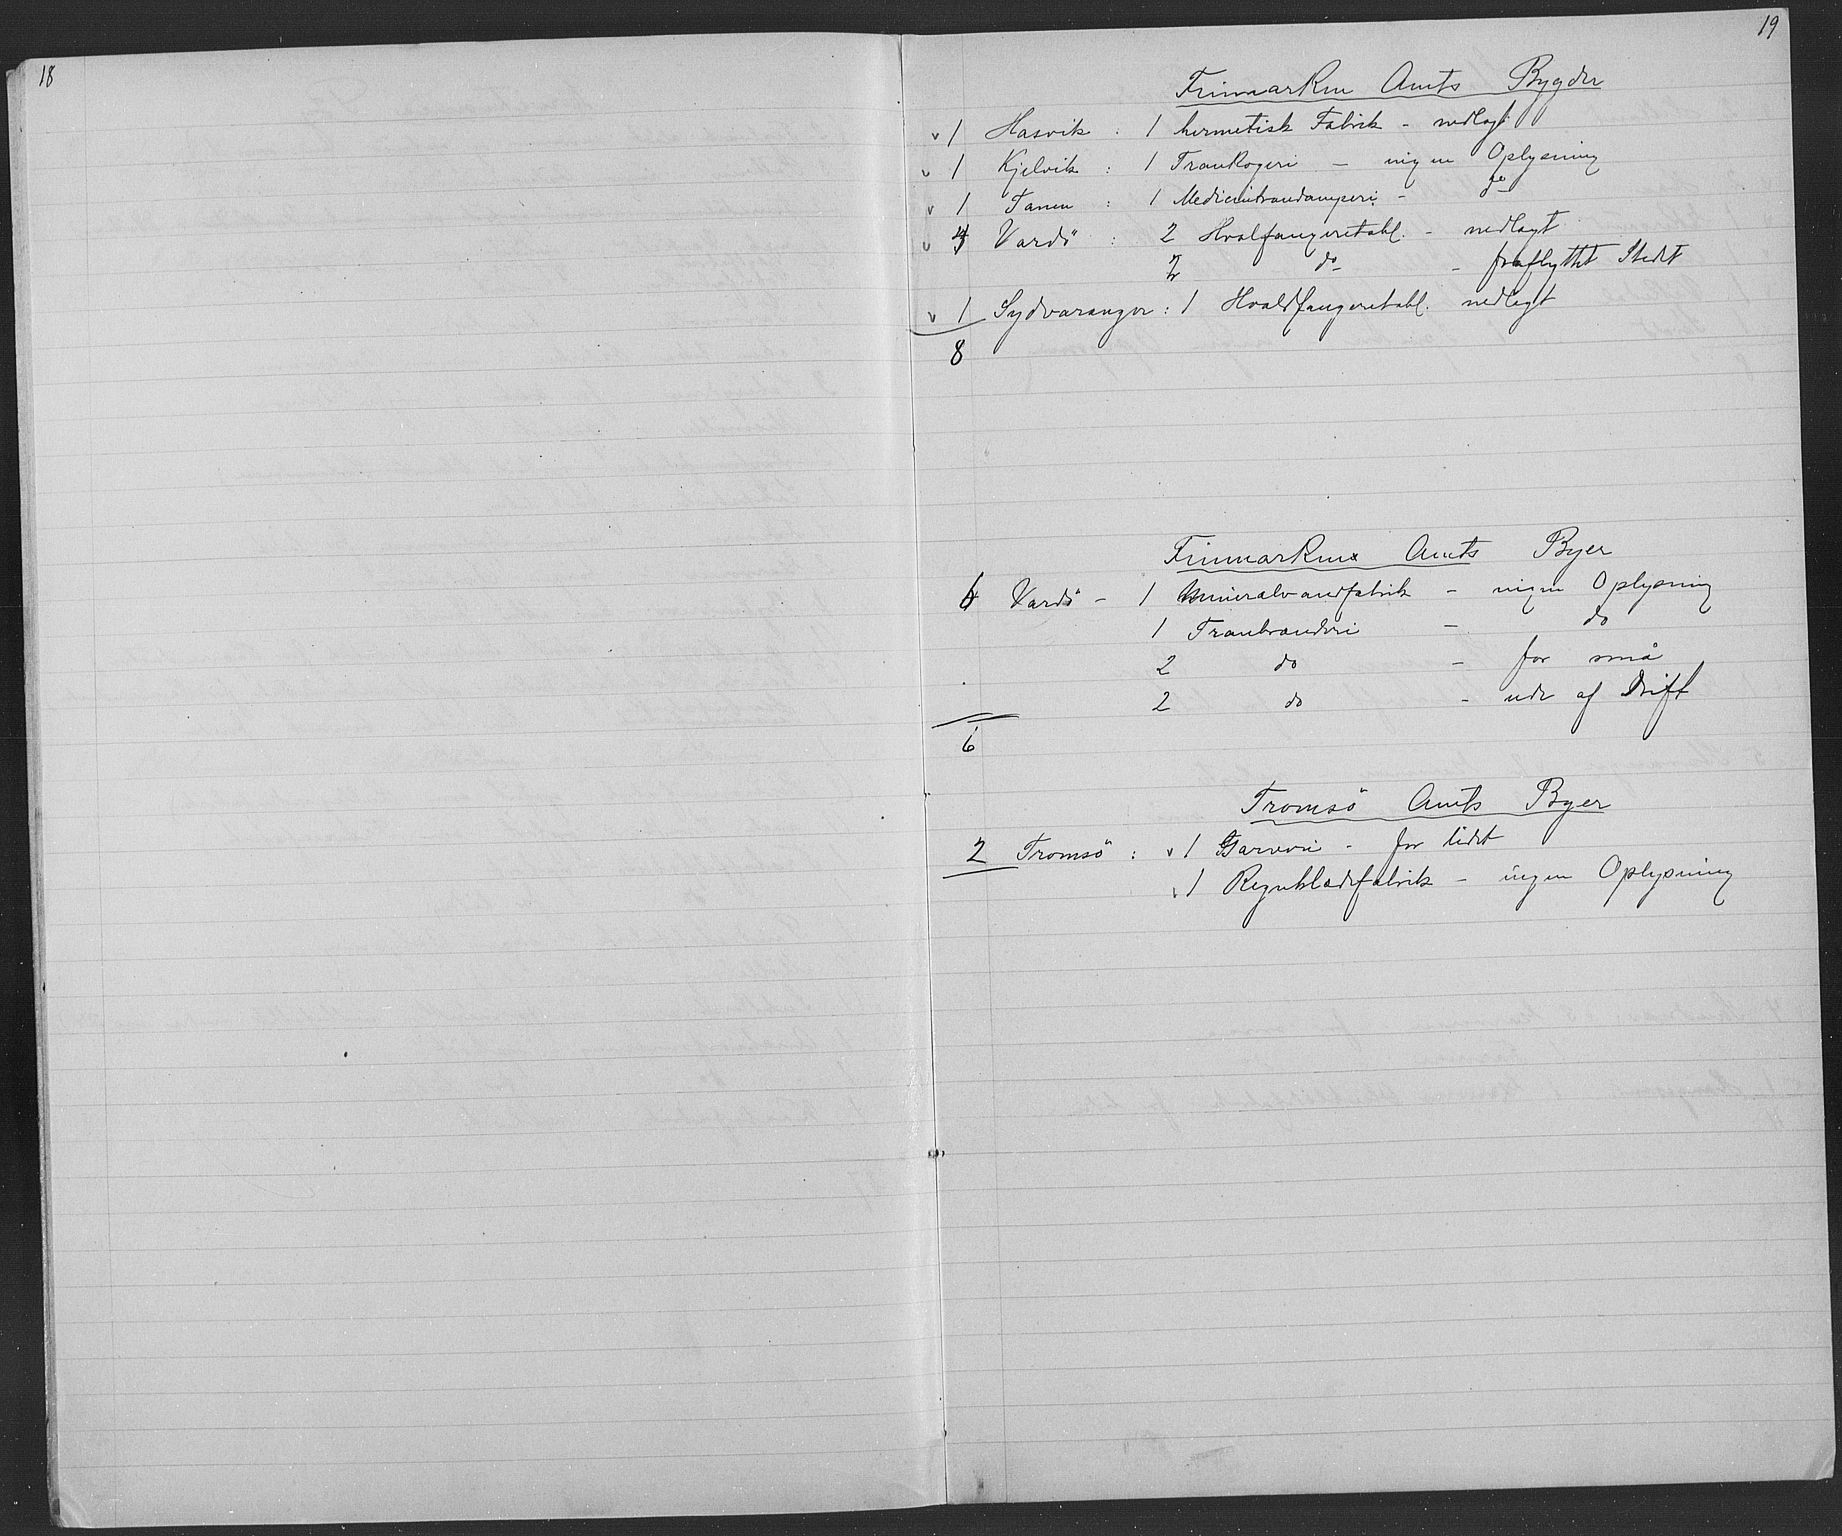 18
19
Finmarken Amts Bygder
v 1 Hasvik : 1 hermetisk Fabrik - nedlagt
v 1 Kjelvik : 1 Trankogeri - ingen Oplysning
v 1 Tanen : 1 Medicintrandamperi - do
v 4 Vardö : 2 Hvalfangeretabl. - nedlagt
2 do - fraflyttet Stedet
v 1 Sydvaranger : 1 Hvaldfangeretabl. nedlagt
8
Finmarkens Amts Byer
6 Vardö - 1 Mineralvandfabrik - ingen Oplysning
1 Tranbrænderi - do
2 do - for små
2 do - ude af Drift
6
Tromsö Amts Byer
2 Tromsö : v 1 Garveri - for lidet
v 1 Regnklædefabrik - ingen Oplysning